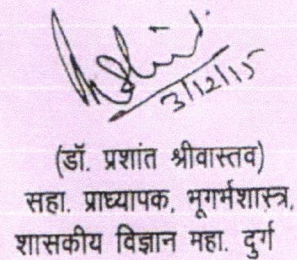 3/12/15
(डॉ. प्रशांत श्रीवास्तव)
सहा. प्राध्यापक, भूगर्भशास्त्र,
शासकीय विज्ञान महा. दुर्ग